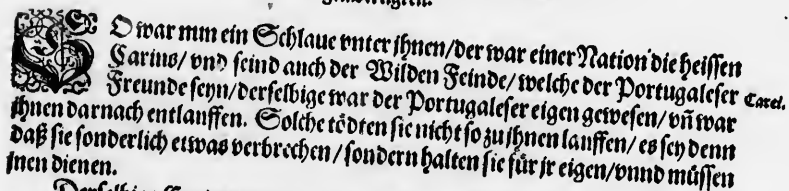 SO war nun ein Schlaue vnter jhnen/der war einer Nation die heissen
Carius/ vnd seind auch der Wilden Feinde/welche der Portugaleser
Caroi.
Freunde seyn/derselbige war der Portugaleser eigen gewesen/ vñ war
jhnen darnach entlauffen. Solche tödten sie nicht so zu jhnen lauffen/ es sey denn
daß sie sonderlich etwas verbrechen/ sondern halten sie für jr eigen/vnnd müssen
jnen dienen.
Derselbige